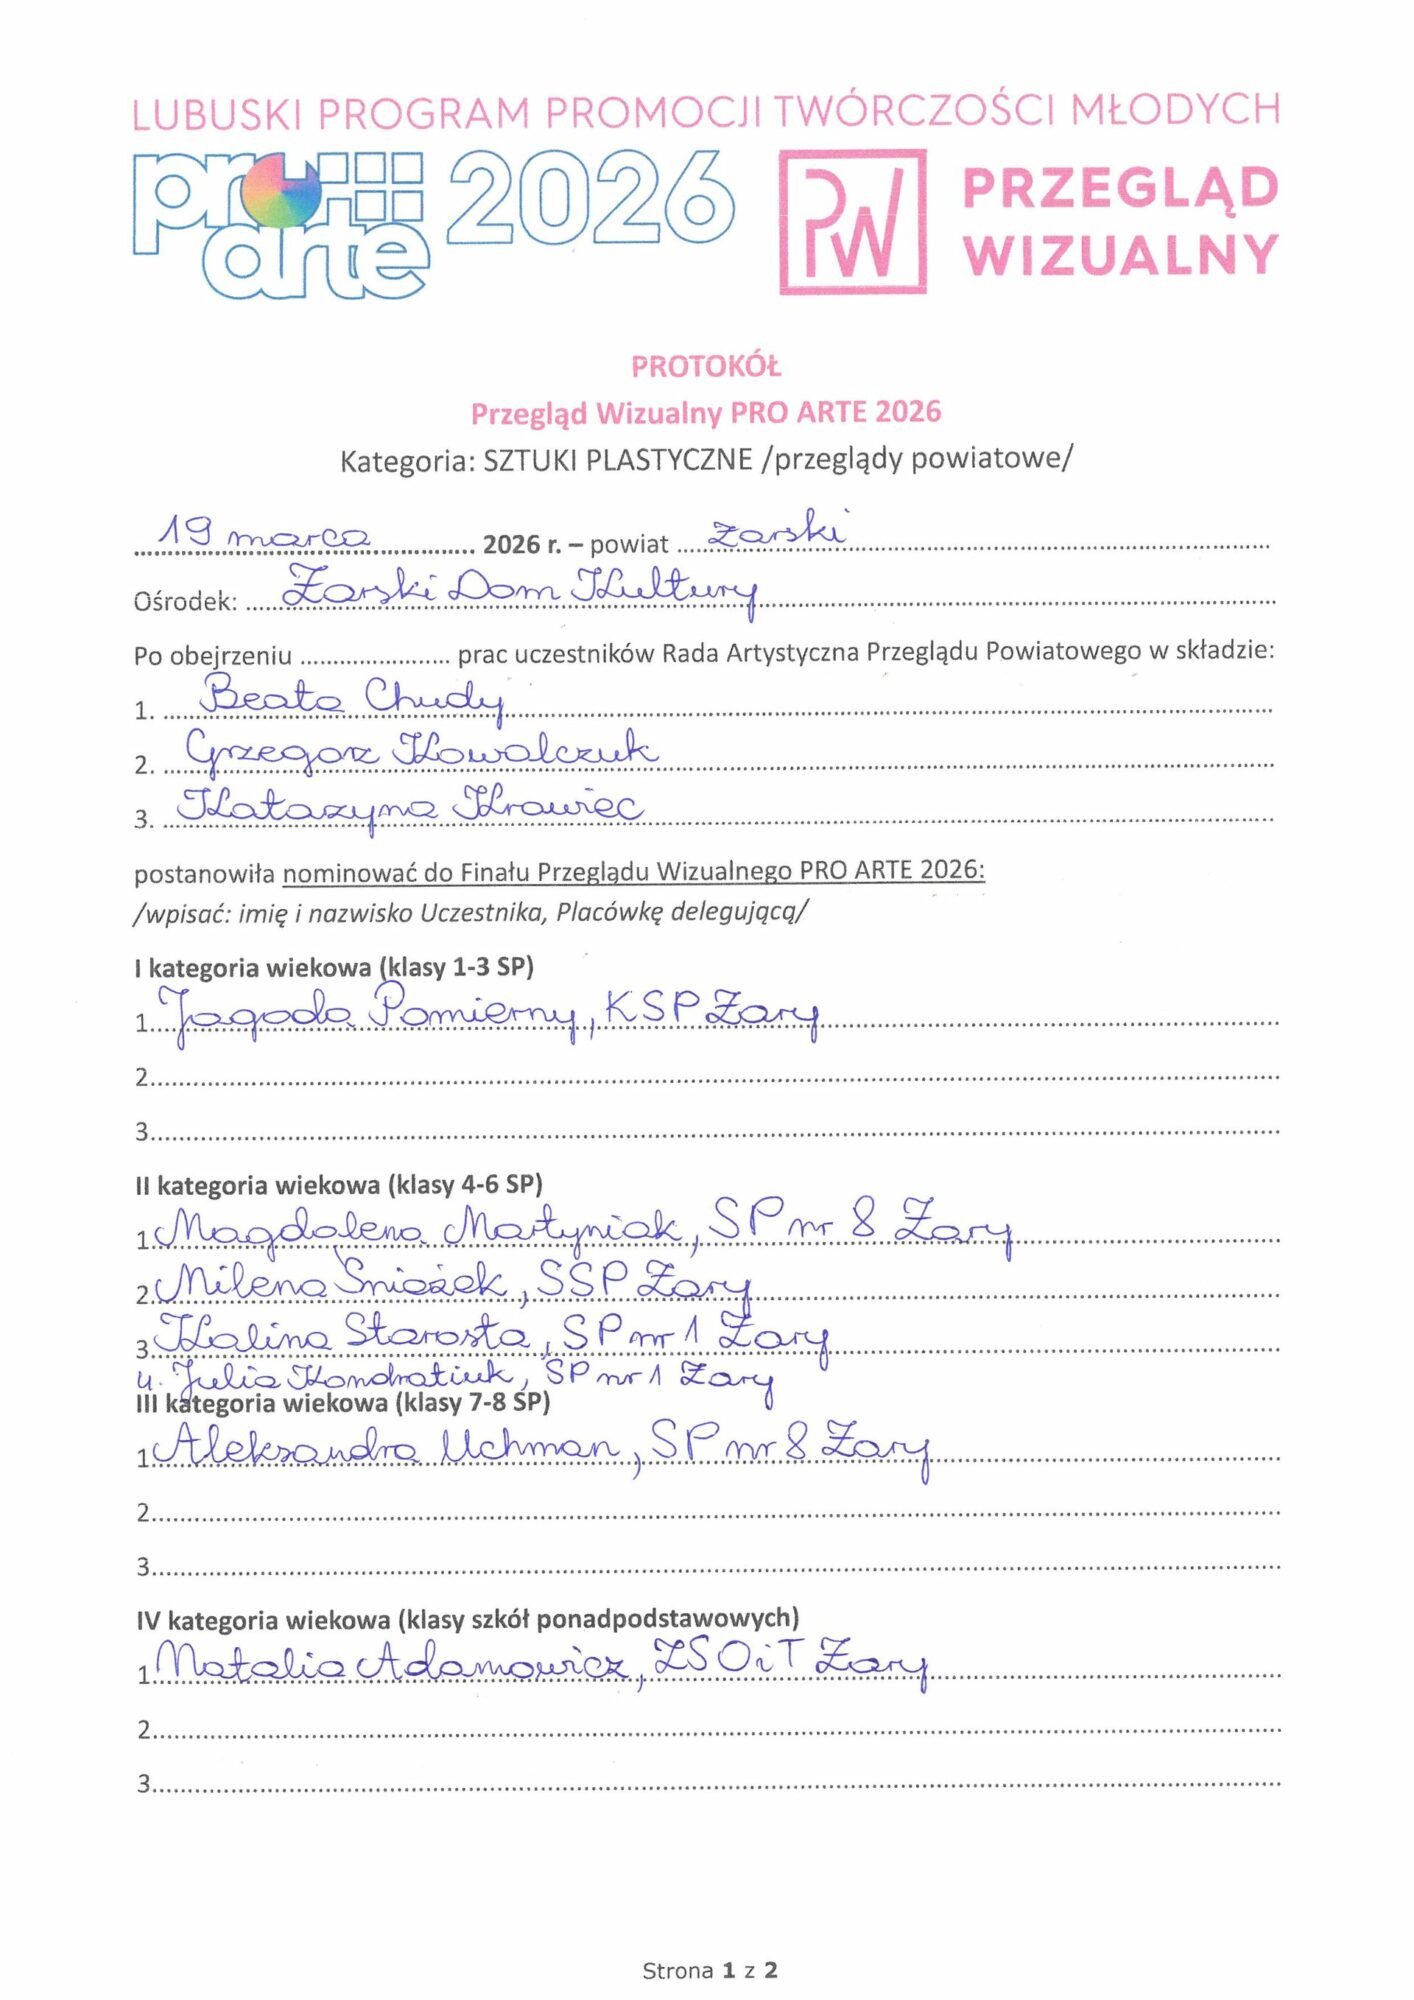 LUBUSKI PROGRAM PROMOCJI TWÓRCZOŚCI MŁODYCH
pro arte 2026 PW PRZEGLĄD WIZUALNY
PROTOKÓŁ
Przegląd Wizualny PRO ARTE 2026
Kategoria: SZTUKI PLASTYCZNE /przeglądy powiatowe/
19 marca 2026 r. – powiat żarski
Ośrodek: Żarski Dom Kultury
Po obejrzeniu ........................ prac uczestników Rada Artystyczna Przeglądu Powiatowego w składzie:
1. Beata Chudy
2. Grzegorz Kowalczuk
3. Katarzyna Krawiec
postanowiła nominować do Finału Przeglądu Wizualnego PRO ARTE 2026:
/wpisać: imię i nazwisko Uczestnika, Placówkę delegującą/
I kategoria wiekowa (klasy 1-3 SP)
1. Jagoda Pomierny, KSP Żary
2.
3.
II kategoria wiekowa (klasy 4-6 SP)
1. Magdalena Martyniak, SP nr 8 Żary
2. Milena Śnieżek, SSP Żary
3. Kalina Starosta, SP nr 1 Żary
4. Julia Kondratiuk, SP nr 1 Żary
III kategoria wiekowa (klasy 7-8 SP)
1. Aleksandra Uchman, SP nr 8 Żary
2.
3.
IV kategoria wiekowa (klasy szkół ponadpodstawowych)
1. Natalia Adamowicz, ZSOiT Żary
2.
3.
Strona 1 z 2